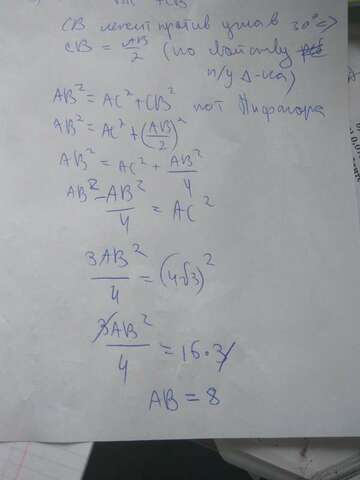 +CB
CB лежит против угла в 30° =>
CB = AB/2 (по свойству
п/у Δ-ка)
AB² = AC² + CB² по т Пифагора
AB² = AC² + (AB/2)²
AB² = AC² + AB²/4
AB² - AB²/4 = AC²
3AB²/4 = (4√3)²
3AB²/4 = 16·3
AB = 8